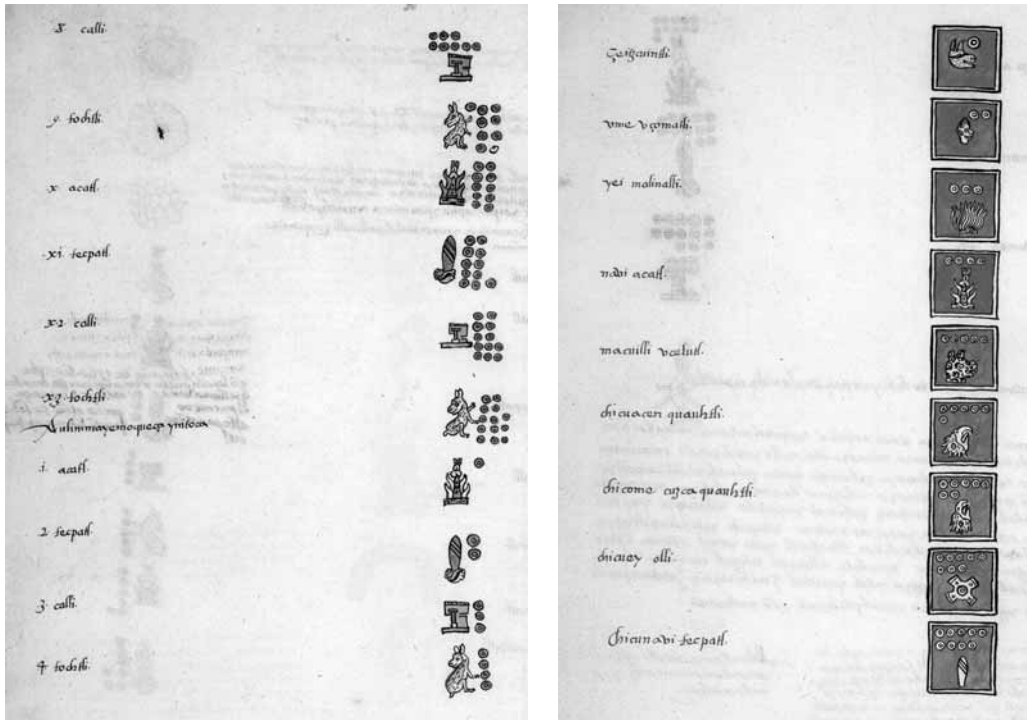 8 calli.
9 tochtli.
x acatl.
xi tecpatl.
x2 calli.
x3 tochtli
1 acatl.
2 tecpatl.
3 calli.
4 tochtli.
Çeizcuintli.
vme vçomatli.
yei malinalli.
nabi acatl.
macuilli vcelutl.
chicuacen quauhtli.
chicome cuzcaquauhtli.
chicuey olli.
Chicunavi tecpatl.